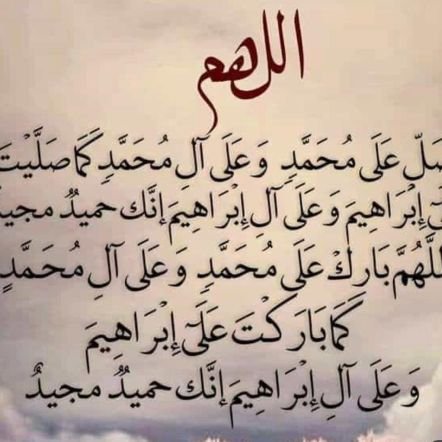 اللهم
صَلِّ عَلَى مُحَمَّدٍ وَعَلَى آلِ مُحَمَّدٍ كَمَا صَلَّيْتَ
إِبْرَاهِيمَ وَعَلَى آلِ إِبْرَاهِيمَ إنَّك حميدٌ مجيدٌ
اللَّهُمَّ بَارِكْ عَلَى مُحَمَّدٍ وَعَلَى آلِ مُحَمَّدٍ
كَمَا بَارَكْتَ عَلَى إِبْرَاهِيمَ
وَعَلَى آلِ إِبْرَاهِيمَ إنَّك حميدٌ مجيدٌ